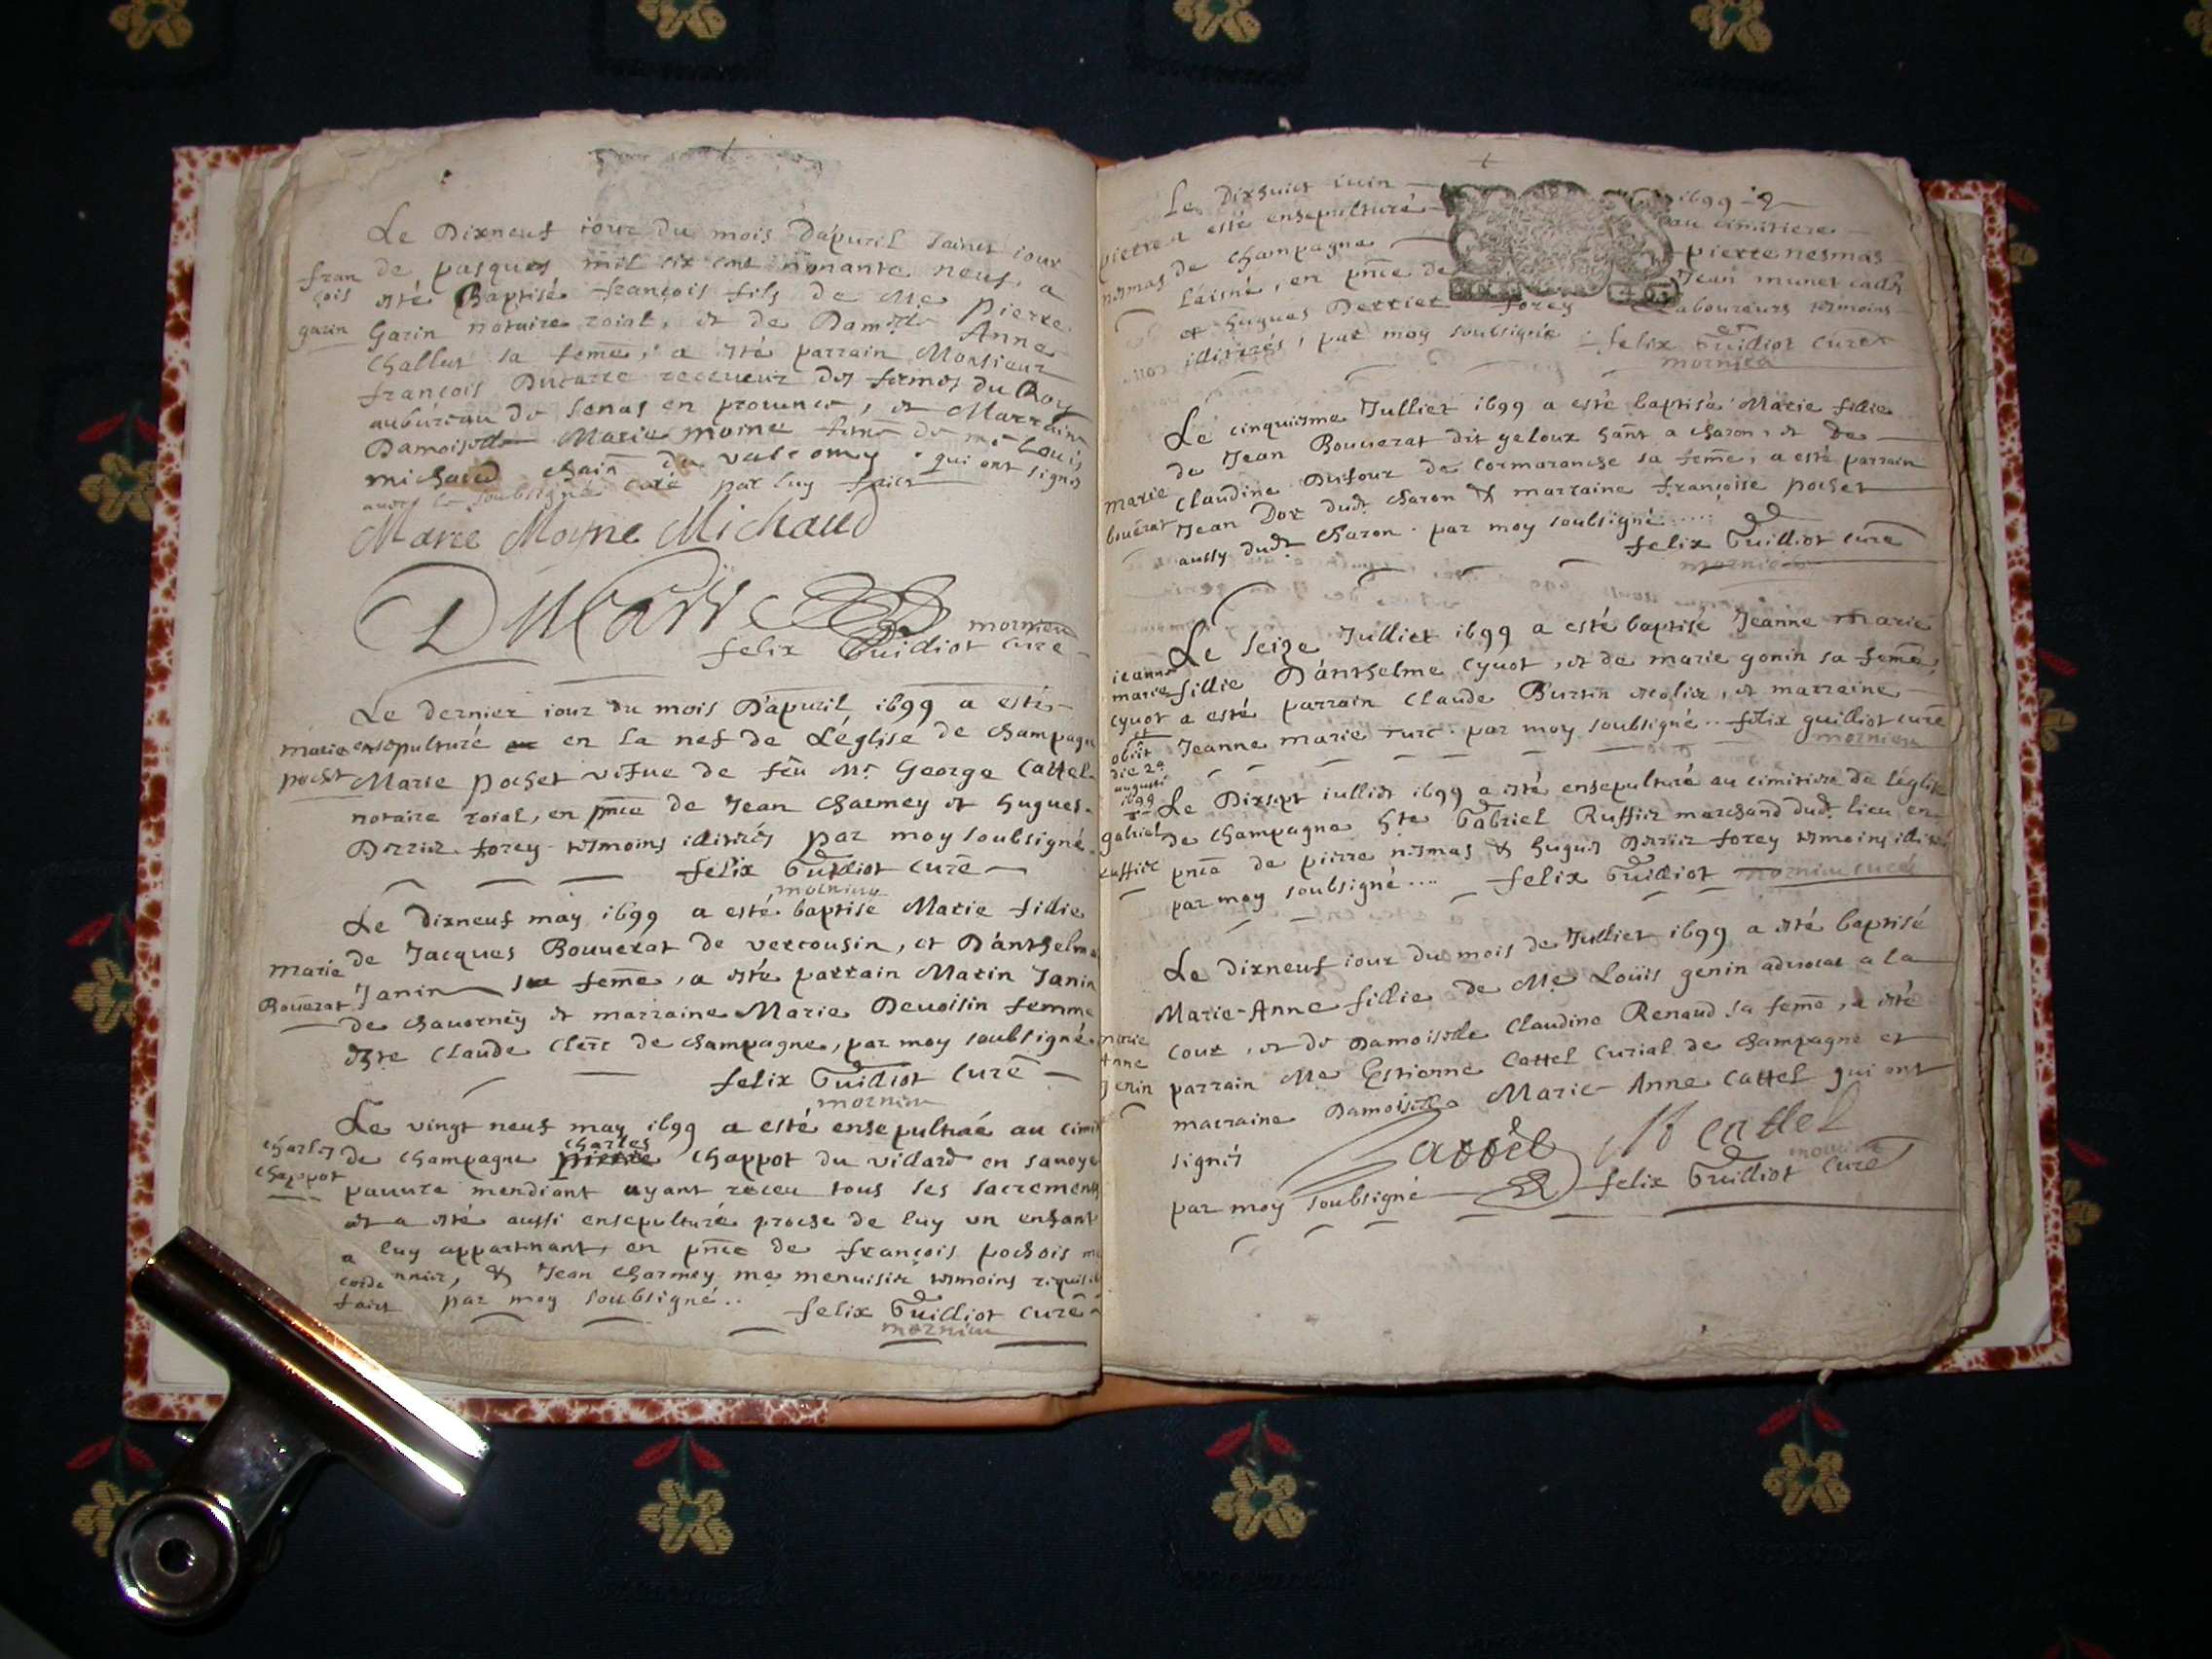 Le Dixneuf iour du mois D'apuril sainct iour
de pasques mil six cent nonante neuf, a
fran
çois
garin
esté Baptisé françois fils de Me Pierre
Garin notaire roial, et de Dam.lle Anne
Challut sa feme, a esté parrain Monsieur
françois Ducarre receueur des fermes du Roy
au bureau de senas en prouince, et Marraine
Damoiselle Marie moine feme de me Louis
michaud chain du valromey . qui ont signés
auec le soubsigné curé par luy faict
Marie Moyne Michaud
Ducarre
mornieu
felix Guilliot curé
Le dernier iour du mois D'apuril 1699 a esté
marie
pochet
ensepulturé en la nef de L'église de champagne
Marie pochet vefue de feu Mr George Cattel
notaire roial, en pnce de Jean Charmey et hugues
Derrier forey tesmoins illitérés par moy soubsigné
felix Guilliot curé
mornieu
Le dixneuf may 1699 a esté baptisé Marie fillie
de Jacques Bouuerat de vercousin, et D'anthelme
marie
Bouerat
Janin sa feme, a esté parrain Marin Janin
de chauorney et marraine Marie Deuoisin femme
d'hte Claude Clerc de champagne, par moy soubsigné
felix Guilliot Curé
mornieu
Le vingt neuf may 1699 a esté ensepultraé au cimit
charles
chappot
de champagne pierre charles chappot du villard en sauoye
pauure mendiant ayant receu tous ses sacrements
et a esté aussi ensepulturé proche de luy un enfant
a luy appartenant, en pnce de françois pochois me
cordonnier, & Jean Charmey me menuisier tesmoins réquisit
faict par moy soubsigné..
felix Guilliot curé
mornieu
Le Dixhuict iuin 1699
pierre
nesmas
a esté ensepulturé au cimitiere
de Champagne pierre nesmas
L'aisné, en pnce de Jean munet cadet
et hugues Derrier forey Laboureurs tesmoins
illitérés, par moy soubsigné felix Guilliot Curé
mornieu
Le cinquiesme Julliet 1699 a esté baptisée Marie fillie
de Jean Bouuerat dit geloux hant a charon, et de
marie
bouérat
Claudine Dufour de Cormaranche sa feme, a esté parrain
Jean Dor dudt charon & marraine françoise pochet
aussy dudt Charon . par moy soubsigné.....
felix Guilliot curé
mornieu
Le seize Julliet 1699 a esté baptisé Jeanne marie
ieanne
marie
cyuot
obiit
die 2a
augusti
1699
fillie D'anthelme Cyuot, et de marie gonin sa feme,
a esté parrain Claude Burtin escolier, et marraine
Jeanne marie turc . par moy soubsigné.. felix guilliot curé
mornieu
Le Dixsept iulliet 1699 a esté ensepulturé au cimitiere de l'église
gabriel
ruffier
de Champagne hte Gabriel Ruffier marchand dudt lieu en
pnce de pierre nesmas & hugues Derrier forey tesmoins illitérés
par moy soubsigné.... felix Guilliot mornieu curé
Le dixneuf iour du mois de Julliet 1699 a esté baptisé
Marie-Anne fillie de Me Loüis genin aduocat a la
marie
Anne
Jenin
cour, et de Damoiselle Claudine Renaud sa feme, a esté
parrain Me Estienne Cattel Curial de Champagne et
marraine Damoiselle Marie-Anne Cattel qui ont
signés
Cattel M Cattel
par moy soubsigné felix Guilliot Curé
mornieu